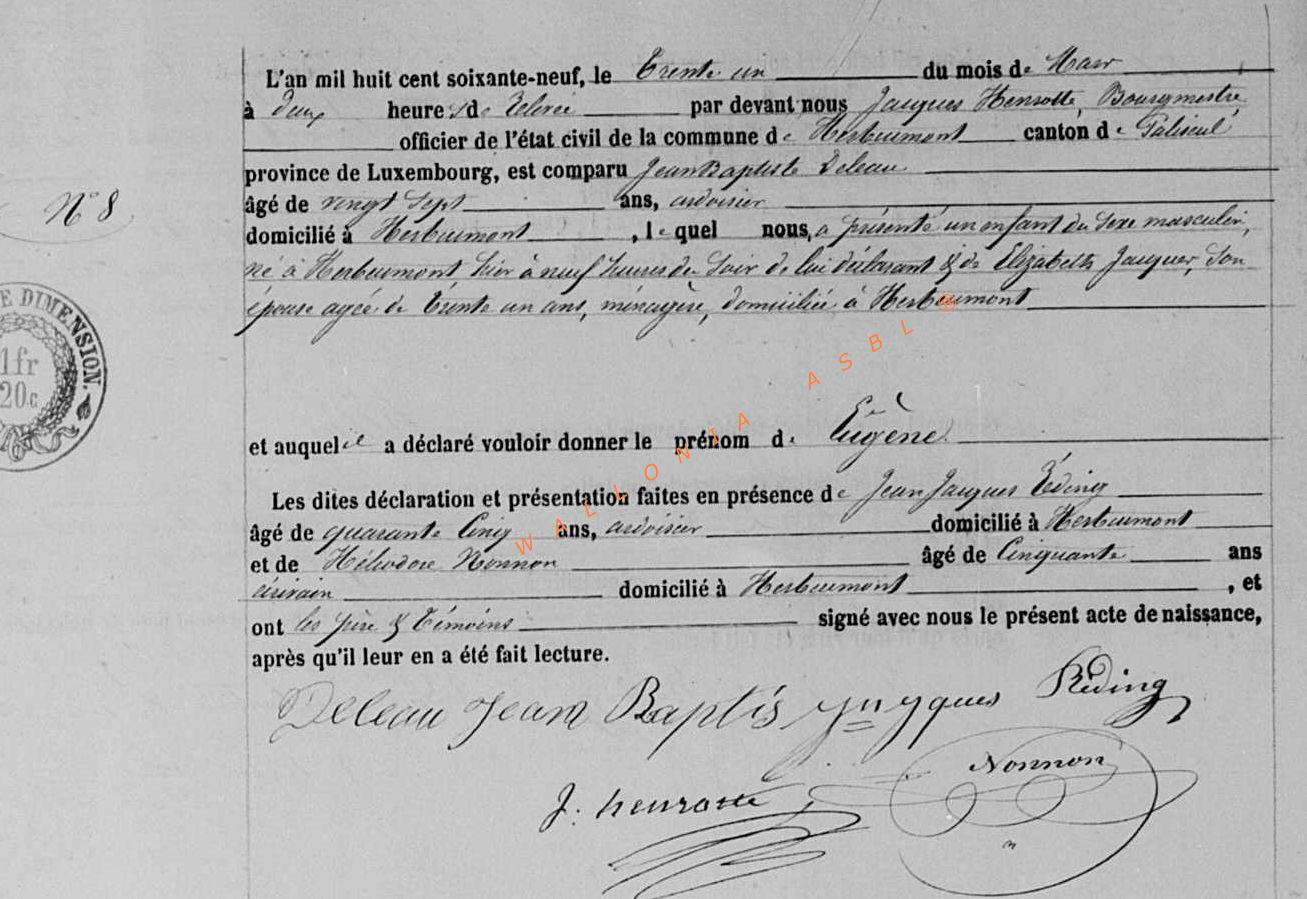 L'an mil huit cent soixante-neuf, le Trente un du mois de Mars
à deux heures de Relevée par devant nous Jacques Henrotte, Bourgmestre
officier de l'état civil de la commune de Herbeumont canton de Paliseul
province de Luxembourg, est comparu Jean Baptiste Deleau
âgé de vingt sept ans, ardoisier
domicilié à Herbeumont, le quel nous, a présenté un enfant du sexe masculin,
N° 8
né à Herbeumont hier à neuf heures du soir de lui déclarant & de Elizabeth Jacques, son
épouse agée de Trente un ans, ménagère, domiciliée à Herbeumont
E DIMENSION.
1 fr
20 c
WALLONIA ASBL ©
et auquel il a déclaré vouloir donner le prénom de Eugène
Les dites déclaration et présentation faites en présence de Jean Jacques Réding
âgé de quarante Cinq ans, ardoisier domicilié à Herbeumont
et de Héliodore Nonnon âgé de Cinquante ans
écrivain domicilié à Herbeumont, et
ont les père & Témoins signé avec nous le présent acte de naissance,
après qu'il leur en a été fait lecture.
Deleau Jean Baptis Réding
Nonnon
J. henrotte